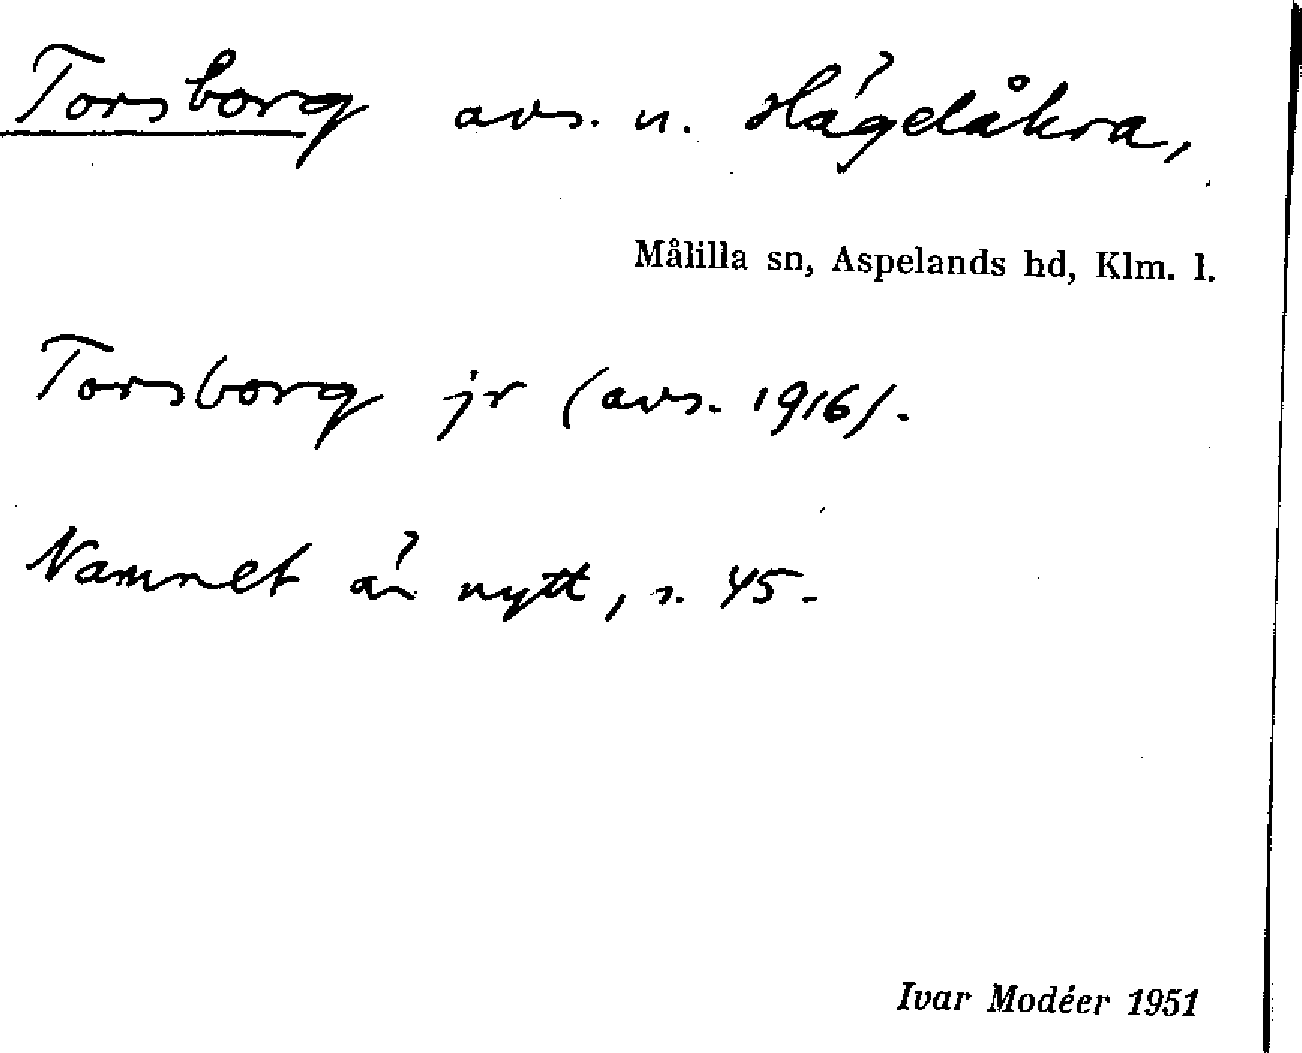 Torsborg avs. u. Hägelåkra,
Målilla sn, Aspelands hd, Klm. l.
Torsborg jr (avs. 1916).
Namnet är nytt, s. 45.
Ivar Modéer 1951